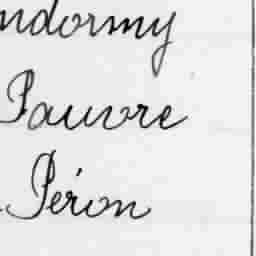 ndormy
Pauvre
Péron